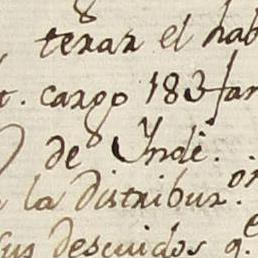 tener el hab
t. cargo 183 fan
de Yndè.
la distribuz.on
sus descuidos q.e